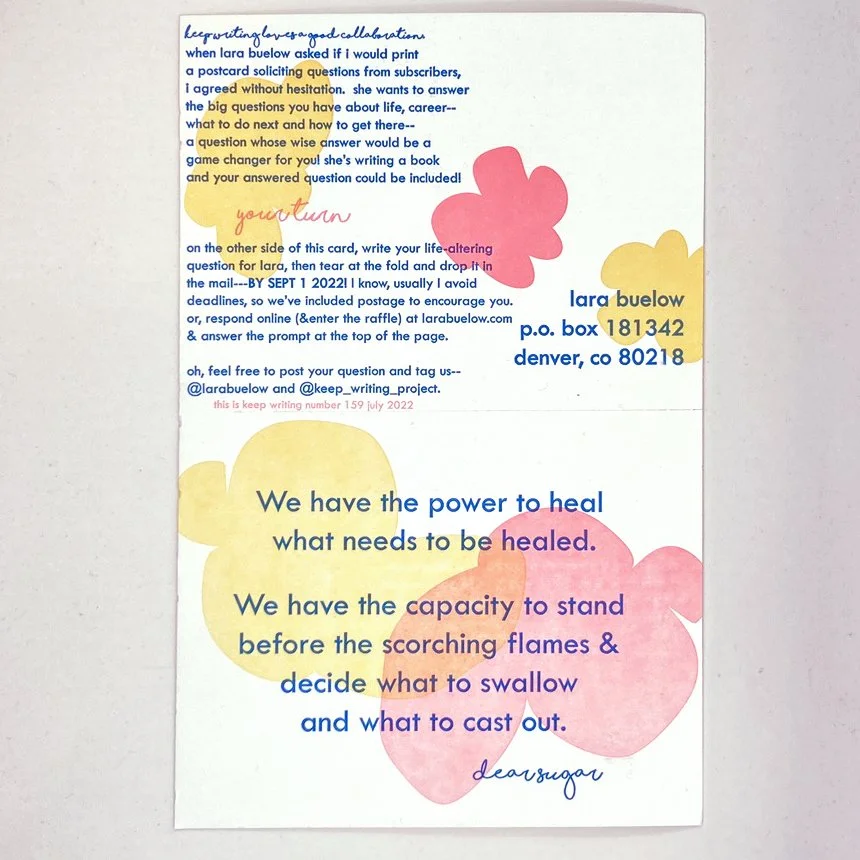 keep writing loves a good collaboration.
when lara buelow asked if i would print
a postcard soliciting questions from subscribers,
i agreed without hesitation. she wants to answer
the big questions you have about life, career--
what to do next and how to get there--
a question whose wise answer would be a
game changer for you! she's writing a book
and your answered question could be included!
your turn
on the other side of this card, write your life-altering
question for lara, then tear at the fold and drop it in
the mail---BY SEPT 1 2022! I know, usually I avoid
deadlines, so we've included postage to encourage you.
or, respond online (&enter the raffle) at larabuelow.com
& answer the prompt at the top of the page.
oh, feel free to post your question and tag us--
@larabuelow and @keep_writing_project.
this is keep writing number 159 july 2022
lara buelow
p.o. box 181342
denver, co 80218
We have the power to heal
what needs to be healed.
We have the capacity to stand
before the scorching flames &
decide what to swallow
and what to cast out.
dear sugar